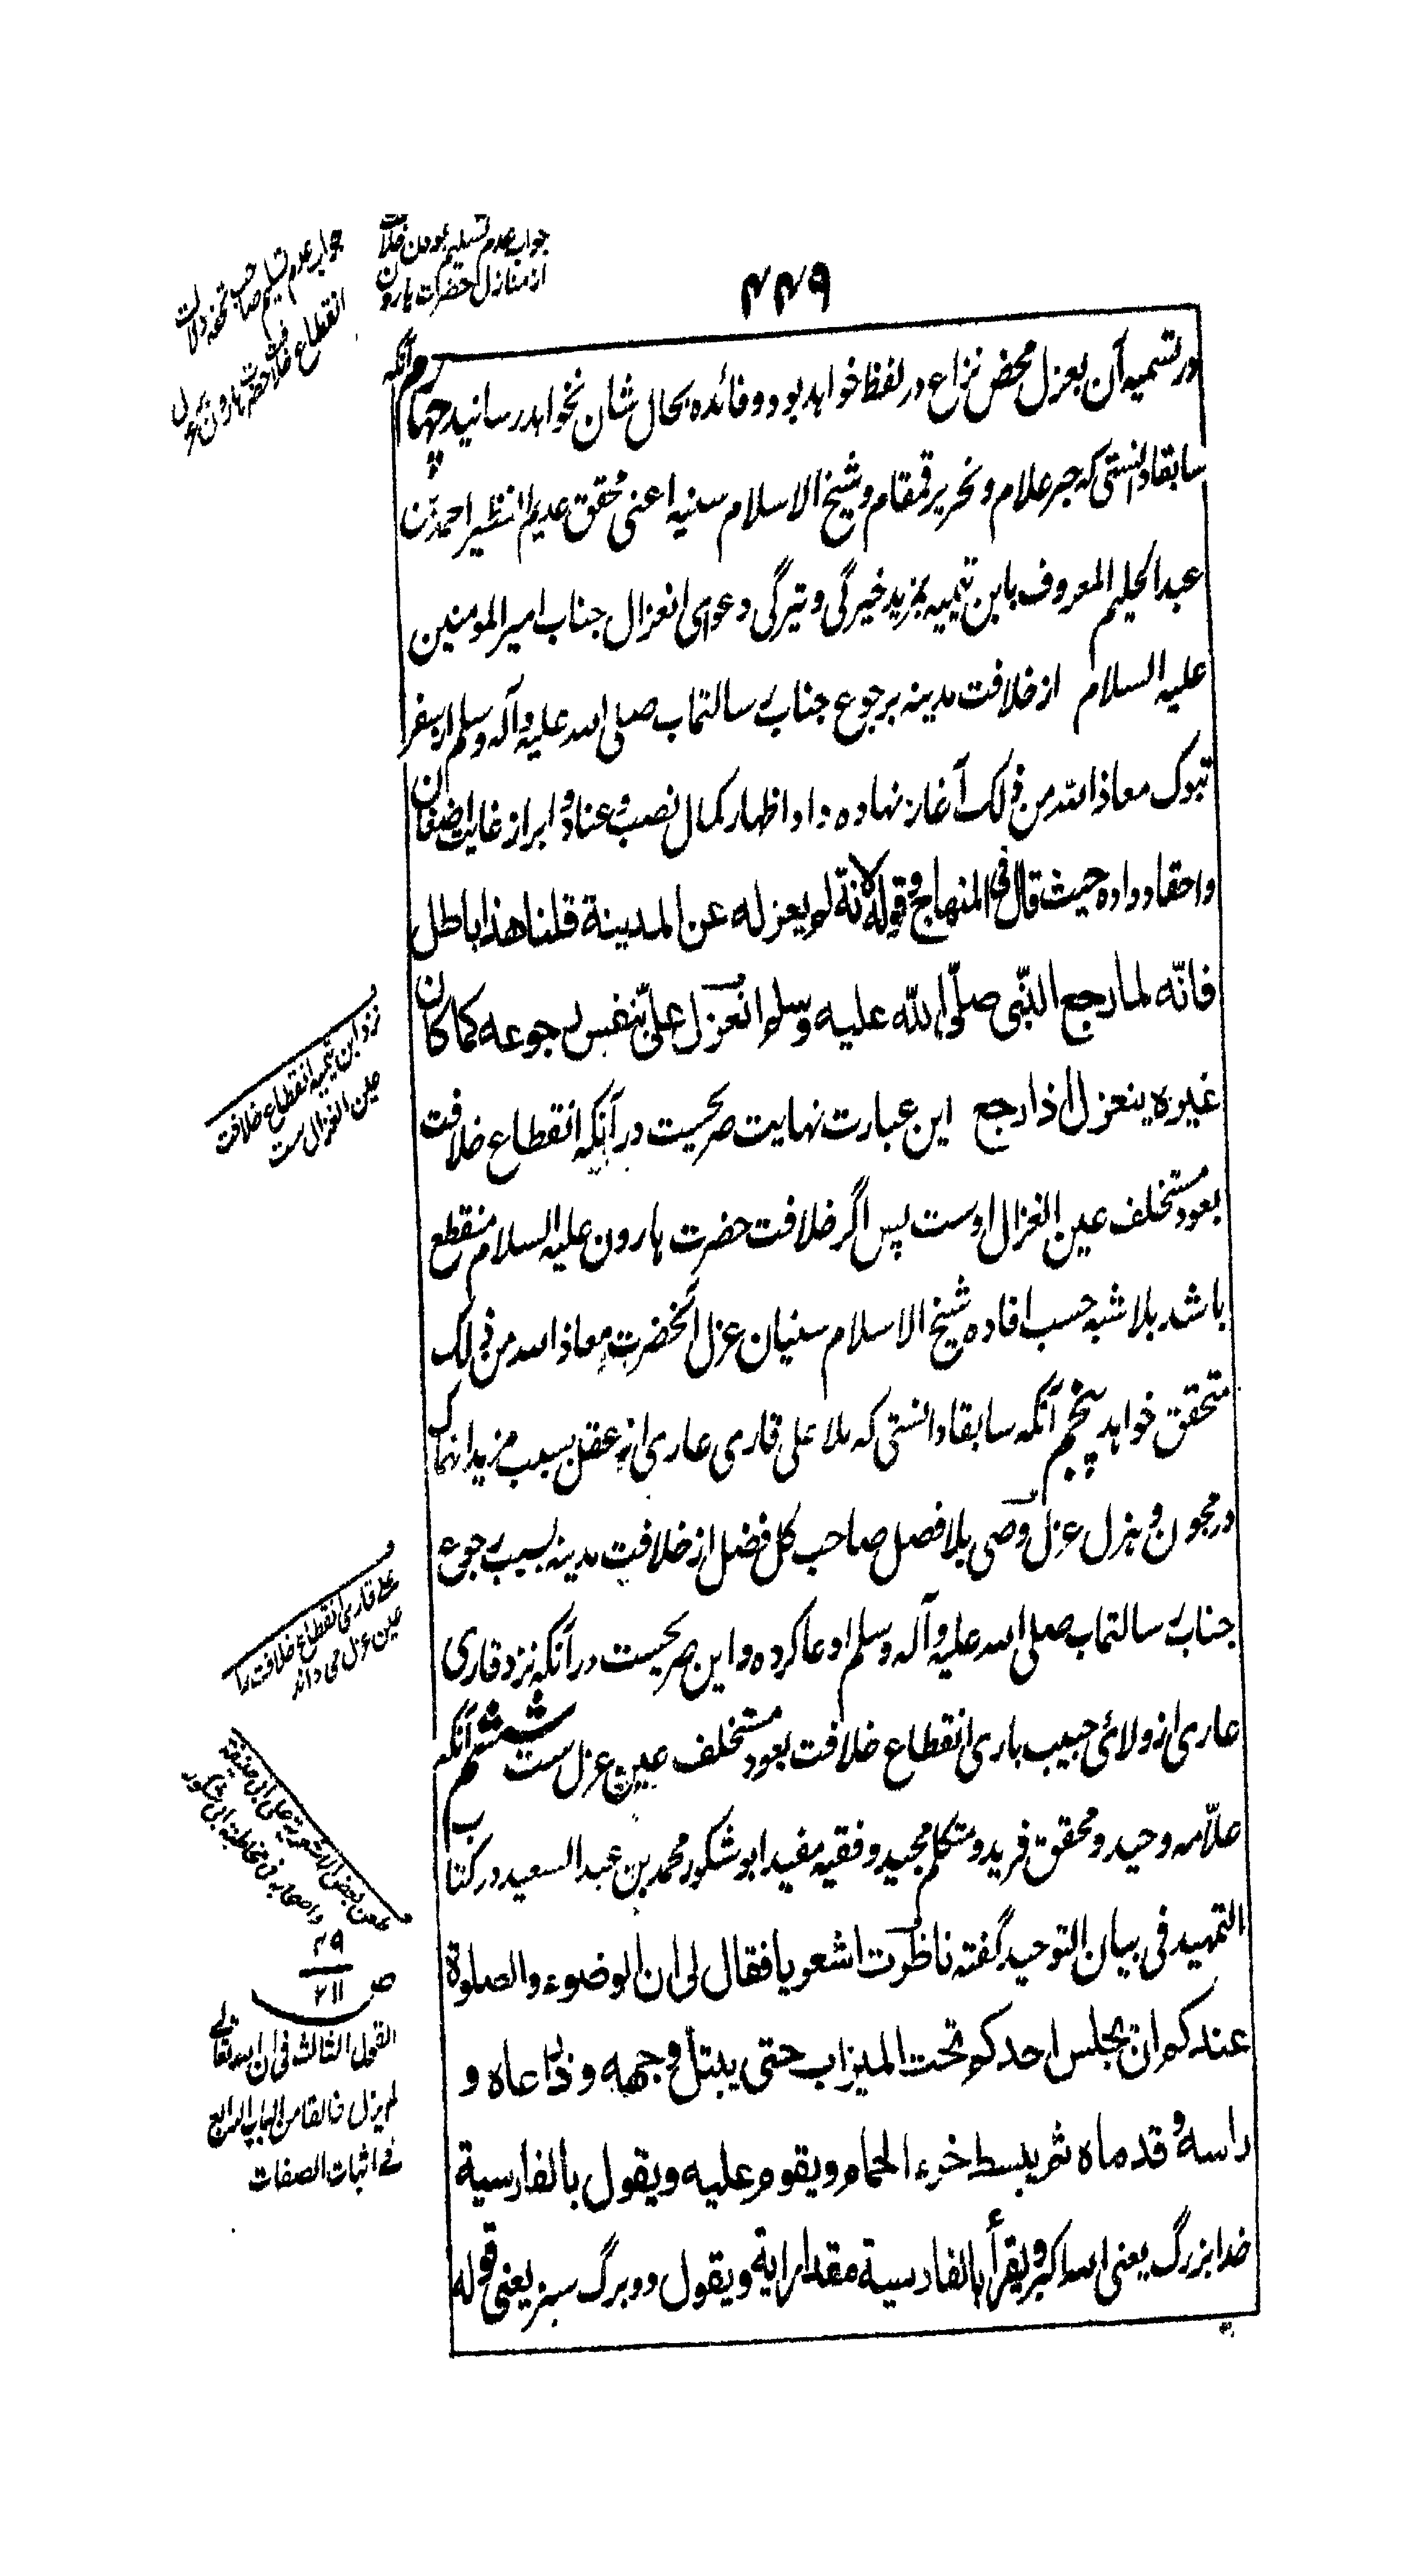 ۴۴۹
جواب عدم تسلیم بودن خلافت
از منازل حضرت هارون
جواب عدم تسلیم صاحب تحفه دلالت
انقطاع خلافت حضرت هارون بر عزل
در تسمیه آن بعزل محض نزاع در لفظ خواهد بود و فائده بحال شان نخواهد رسانید چهارم آنکه
سابقا دانستی که حبر علام و نحریر قمقام و شیخ الاسلام سنیه اعنی محقق عدیم النظیر احمد بن
عبد الحلیم المعروف بابن تیمیه بمزید خیرگی و تیرگی دعوای انعزال جناب امیر المومنین
علیه السلام از خلافت مدینه برجوع جناب رسالتماب صلی الله علیه و آله و سلم از سفر
تبوک معاذ الله من ذلک آغاز نهاده داد اظهار کمال نصب و عناد و ابراز غایت اضغان
و احقاد داده حیث قال فی المنهاج و قوله لانه لم يعزله عن المدينة قلنا هذا باطل
فانّه لما رجع النّبی صلّی الله عليه وسلم انعزل علیّ بنفس رجوعه كما كان
غيره ينعزل اذا رجع این عبارت نهایت صریحست در آنکه انقطاع خلافت
بعود مستخلف عین انعزال اوست پس اگر خلافت حضرت هارون علیه السلام منقطع
باشد بلا شبه حسب افاده شیخ الاسلام سنیان عزل آنحضرت معاذ الله من ذلک
متحقق خواهد پنجم آنکه سابقا دانستی که ملا علی قاری عاری از عقل بسبب مزید انهماک
در مجون و هزل عزل وصی بلا فصل صاحب کل فضل از خلافت مدینه بسبب رجوع
جناب رسالتماب صلی الله علیه و آله و سلم ادعا کرده و این صریحست در آنکه نزد قاری
عاری از ولائ حبیب باری انقطاع خلافت بعود مستخلف عین عزل ست ششم آنکه
علّامه وحید و محقق فرید و متکلم مجید و فقیه مفید ابو شکور محمد بن عبد السعید در کتاب
التمهید فی بیان التوحید گفته ناظرت اشعريا فقال لی ان الوضوء والصلوة
عندكم ان يجلس احدكم تحت الميزاب حتی يبتل وجهه وذراعاه و
راسه و قدماه ثم يبسط خرء الحمام ويقوم عليه ويقول بالفارسية
خدا بزرگ یعنی الله اکبر ویقرأ بالفارسية مقدار اية ويقول دو برگ سبز یعنی قوله
نزد ابن تیمیه انقطاع خلافت
عین انعزال ست
علی قاری انقطاع خلافت را
عین عزل می داند
طعن بعض الاشعریة علی ابی حنیفة
و اصحابه فی مخاطبة ابی شکور
۲۹
ص ۲۱۱
القول الثالث فی ان الله تعالی
لم یزل خالقا من الباب الرابع
فی اثبات الصفات